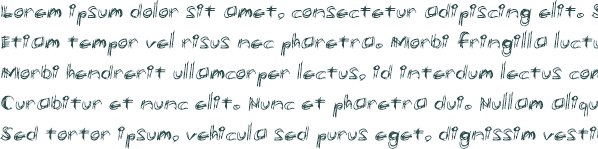 Lorem ipsum dolor sit amet, consectetur adipiscing elit. S
Etiam tempor vel risus nec pharetra. Morbi fringilla luctu
Morbi hendrerit ullamcorper lectus, id interdum lectus con
Curabitur et nunc elit. Nunc et pharetra dui. Nullam aliqu
Sed tortor ipsum, vehicula sed purus eget, dignissim vesti